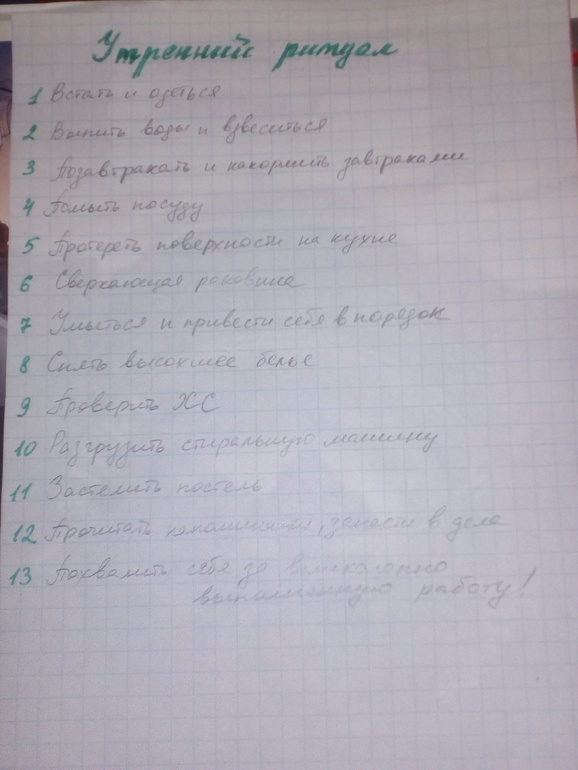 Утренний ритуал
1 Встать и одеться
2 Выпить воды и взвеситься
3 Позавтракать и накормить завтраками
4 Помыть посуду
5 Протереть поверхности на кухне
6 Сверкающая раковина
7 Умыться и привести себя в порядок
8 Снять высохшее белье
9 Проверить ХС
10 Разгрузить стиральную машинку
11 Застелить постель
12 Прочитать напоминания, занести в дела
13 Похвалить себя за великолепно
выполненную работу!